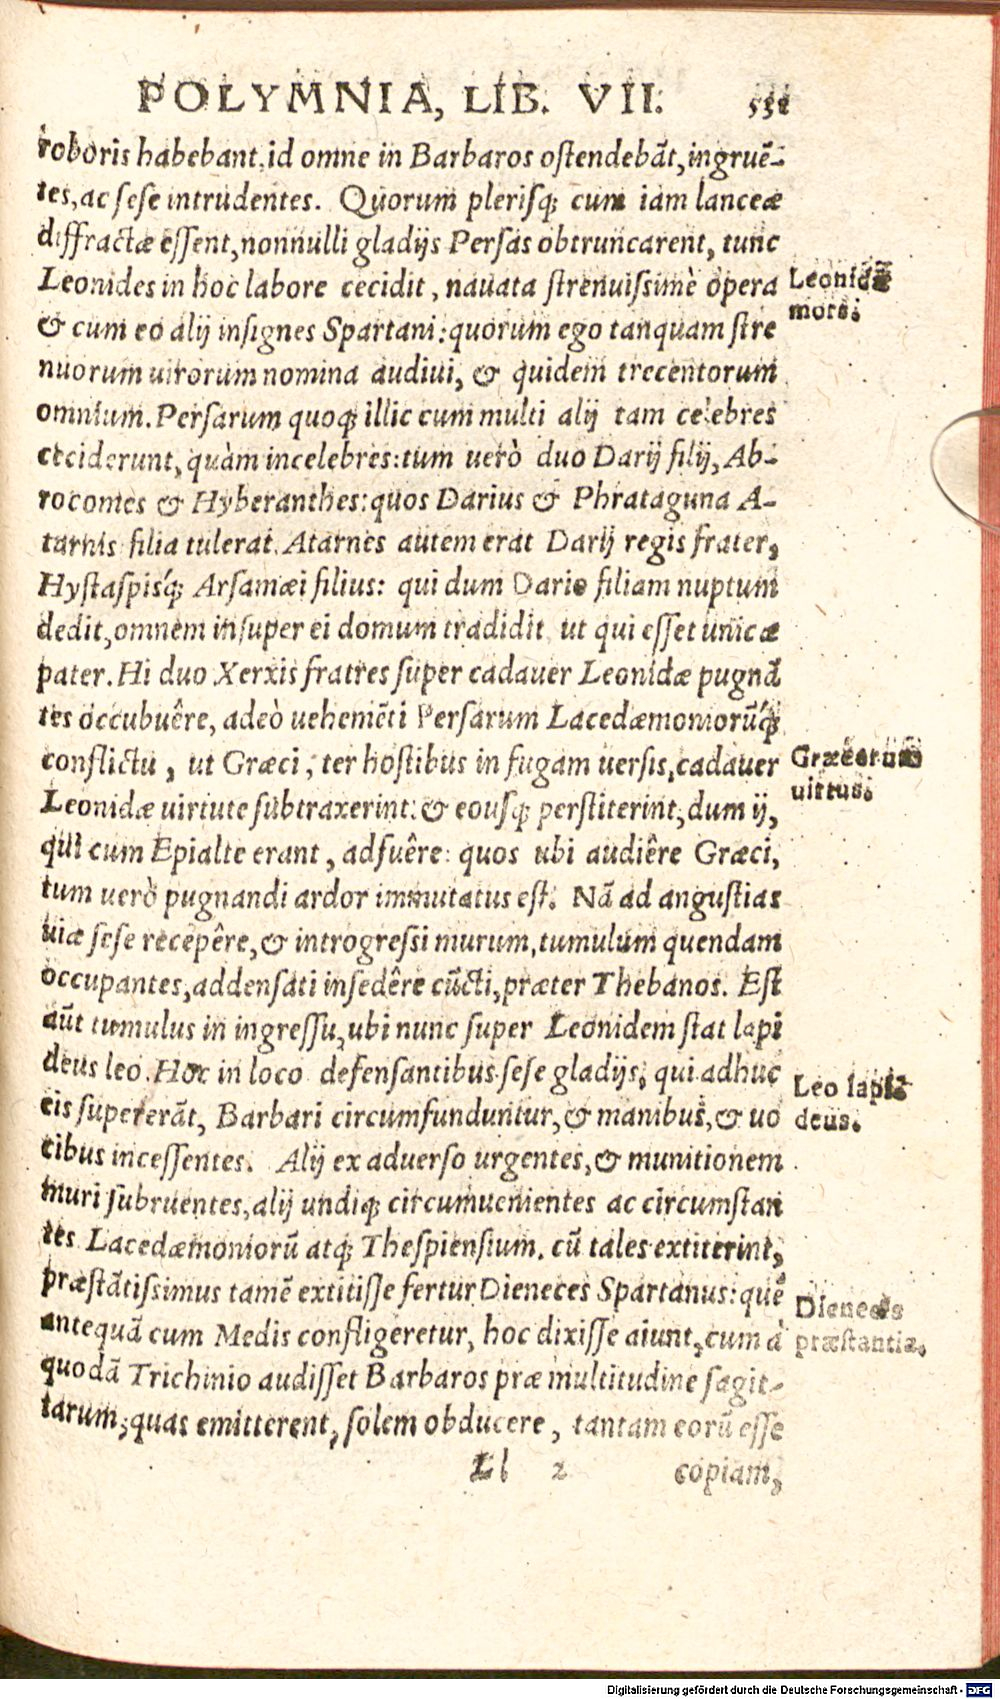 POLYMNIA, LIB. VII. 531
roboris habebant, id omne in Barbaros ostendebãt, ingruẽ-
tes, ac sese intrudentes. Quorum plerisq; cum iam lanceæ
diffractæ essent, nonnulli gladijs Persas obtruncarent, tunc
Leonides in hoc labore cecidit, nauata strenuissimè opera
Leonidæ
& cum eo alij insignes Spartani: quorum ego tanquam stre
mors.
nuorum uirorum nomina audiui, & quidem trecentorum
omnium. Persarum quoq; illic cum multi alij tam celebres
ceciderunt, quàm incelebres: tum uerò duo Darij filij, Ab-
rocomes & Hyberanthes: quos Darius & Phrataguna A-
tarnis filia tulerat. Atarnes autem erat Darij regis frater,
Hystaspisq́; Arsamæi filius: qui dum Dario filiam nuptum
dedit, omnem insuper ei domum tradidit ut qui esset unicæ
pater. Hi duo Xerxis fratres super cadauer Leonidæ pugnã
tes occubuêre, adeò uehemẽti Persarum Lacedæmoniorũq́;
conflictu, ut Græci, ter hostibus in fugam uersis, cadauer
Græcorum
Leonidæ uirtute subtraxerint: & eousq; perstiterint, dum ij,
uirtus.
qui cum Epialte erant, adfuêre: quos ubi audiêre Græci,
tum uerò pugnandi ardor immutatus est. Nã ad angustias
uiæ sese recepêre, & introgressi murum, tumulum quendam
occupantes, addensati insedêre cũcti, præter Thebanos. Est
aũt tumulus in ingressu, ubi nunc super Leonidem stat lapi
deus leo. Hoc in loco defensantibus sese gladijs, qui adhuc
Leo lapi-
eis supererãt, Barbari circumfunduntur, & manibus, & uo
deus.
cibus incessentes. Alij ex aduerso urgentes, & munitionem
muri subruentes, alij undiq; circumuenientes ac circumstan
tes Lacedæmoniorũ atq; Thespiensium. cũ tales extiterint,
præstãtissimus tamẽ extitisse fertur Dieneces Spartanus: quẽ
Dieneces
antequã cum Medis confligeretur, hoc dixisse aiunt, cum à
præstantia.
quodã Trichinio audisset Barbaros præ multitudine sagit-
tarum, quas emitterent, solem obducere, tantam eorũ esse
Ll 2 copiam,
Digitalisierung gefördert durch die Deutsche Forschungsgemeinschaft - DFG